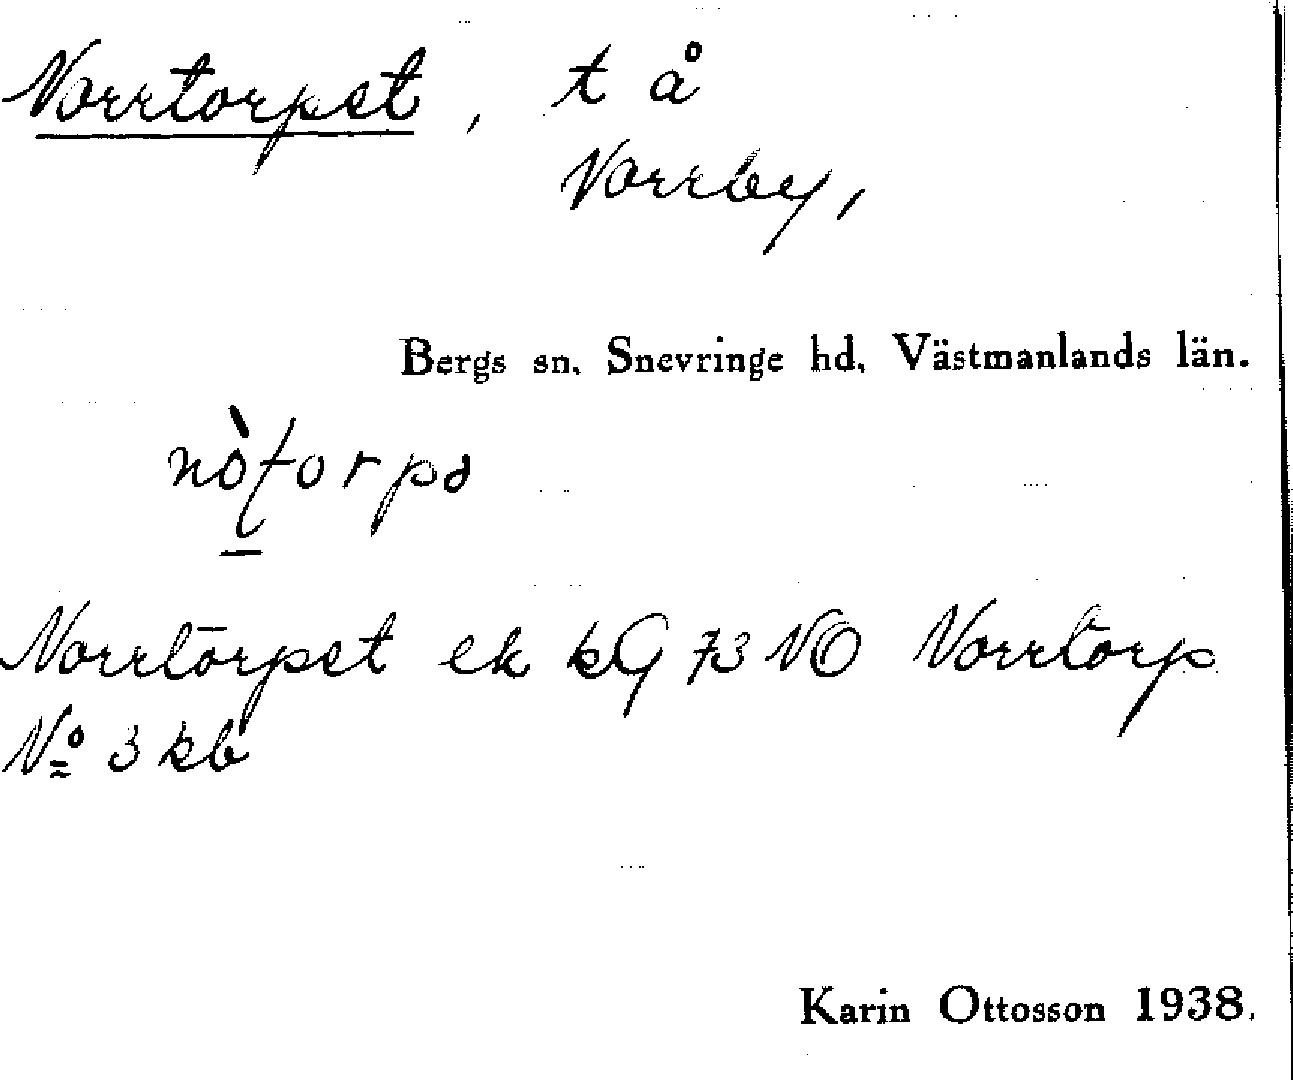 Norrtorpet, t å
Norrby,
Bergs sn. Snevringe hd, Västmanlands län.
Norrtorpet ek kG 73 NO Norrtorp
Nº 3 kb
Karin Ottosson 1938.